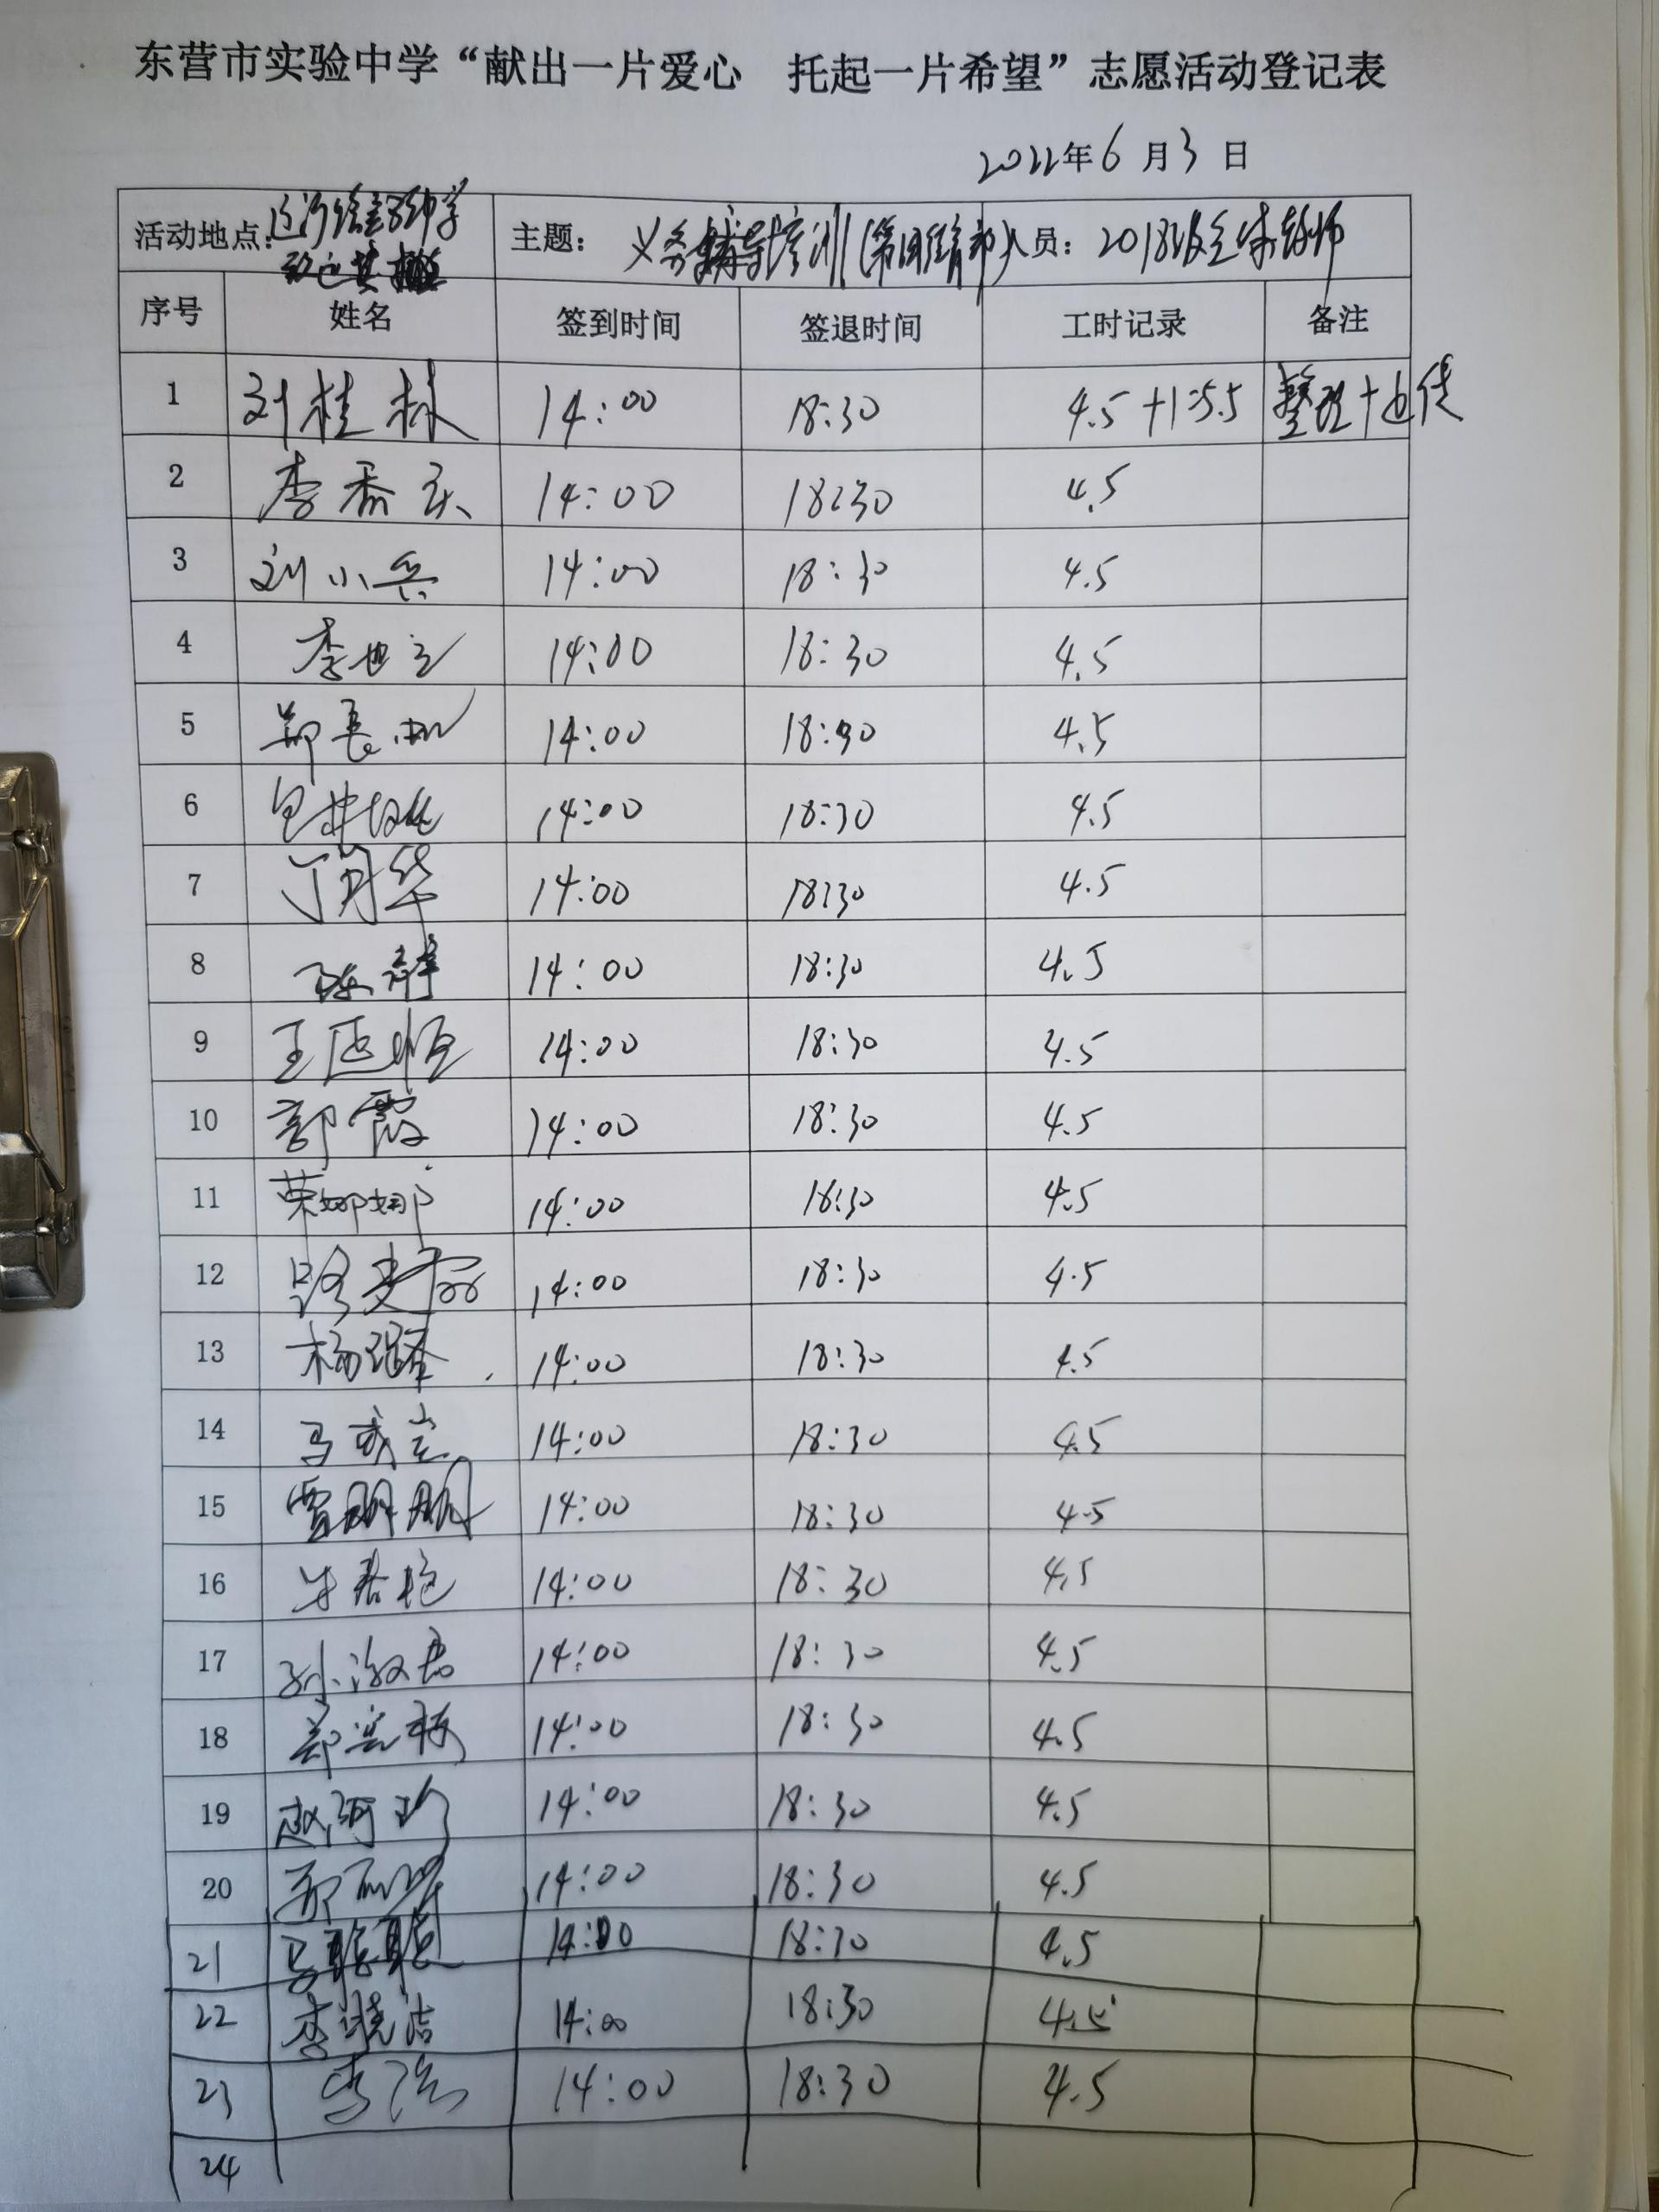 东营市实验中学“献出一片爱心 托起一片希望”志愿活动登记表
2022年6月3日
活动地点: 主题: 义务辅导培训(第四 人员: 2018级全体教师
序号 姓名 签到时间 签退时间 工时记录 备注
1 刘桂林 14:00 18:30 4.5+1=5.5 整理+上传
2 李 14:00 18:30 4.5
3 刘小兵 14:00 18:30 4.5
4 李世 14:00 18:30 4.5
5 郑长 14:00 18:30 4.5
6 14:00 18:30 4.5
7 丁月华 14:00 18:30 4.5
8 陈静 14:00 18:30 4.5
9 王延恒 14:00 18:30 4.5
10 郭霞 14:00 18:30 4.5
11 荣娜娜 14:00 18:30 4.5
12 路 14:00 18:30 4.5
13 杨 14:00 18:30 4.5
14 马 14:00 18:30 4.5
15 贾朋朋 14:00 18:30 4.5
16 14:00 18:30 4.5
17 孙淑君 14:00 18:30 4.5
18 郭 14:00 18:30 4.5
19 赵河 14:00 18:30 4.5
20 14:00 18:30 4.5
21 马聪聪 14:00 18:30 4.5
22 李晓洁 14:00 18:30 4.5
23 李 14:00 18:30 4.5
24